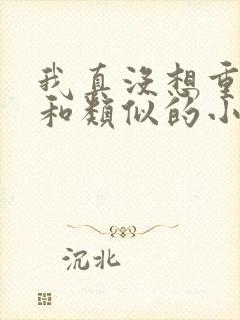 我真没想重
和类似的小
沉北